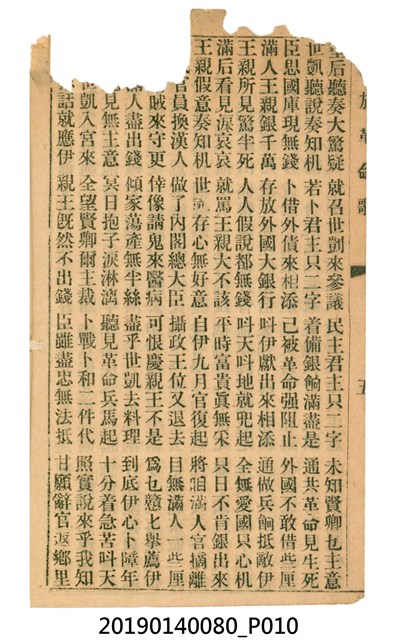 后聽奏大驚疑 就召世凱來參議 民主君主只二字 未知賢卿乜主意
世凱聽說奏知机 若卜君主只二字 着備銀餉滿盡是 通共革命見生死
臣思國庫現無錢 卜借外債來相添 已被革命强阻止 外國不敢借些厘
滿人王親銀千萬 存放外國大銀行 叫伊獻出來相添 通做兵餉抵敵伊
王親所見驚半死 人人假說都無錢 叫天叫地就兜起 全無愛國只心机
滿后看見淚哀哀 就罵王親大不該 平時富貴眞無采 只日不肯銀出來
王親假意奏知机 世凱存心無好意 自伊九月官復起 將咱滿人官摘離
官員換漢人 做了內閣總大臣 攝政王位又退去 目無滿人一些厘
賊來守更 倖像請鬼來醫病 可恨慶親王不是 爲乜戇七舉薦伊
人盡出錢 傾家蕩產無半絲 盡乎世凱去料理 到底伊心卜障年
見無主意 冥日抱子淚淋漓 聽見革命兵馬起 十分着急苦叫天
世凱入宮來 全望賢卿爾主裁 卜戰卜和二件代 照實說來乎我知
話就應伊 親王旣然不出錢 臣雖盡忠無法抵 甘願辭官返鄉里
革命歌
五
20190140080_P010